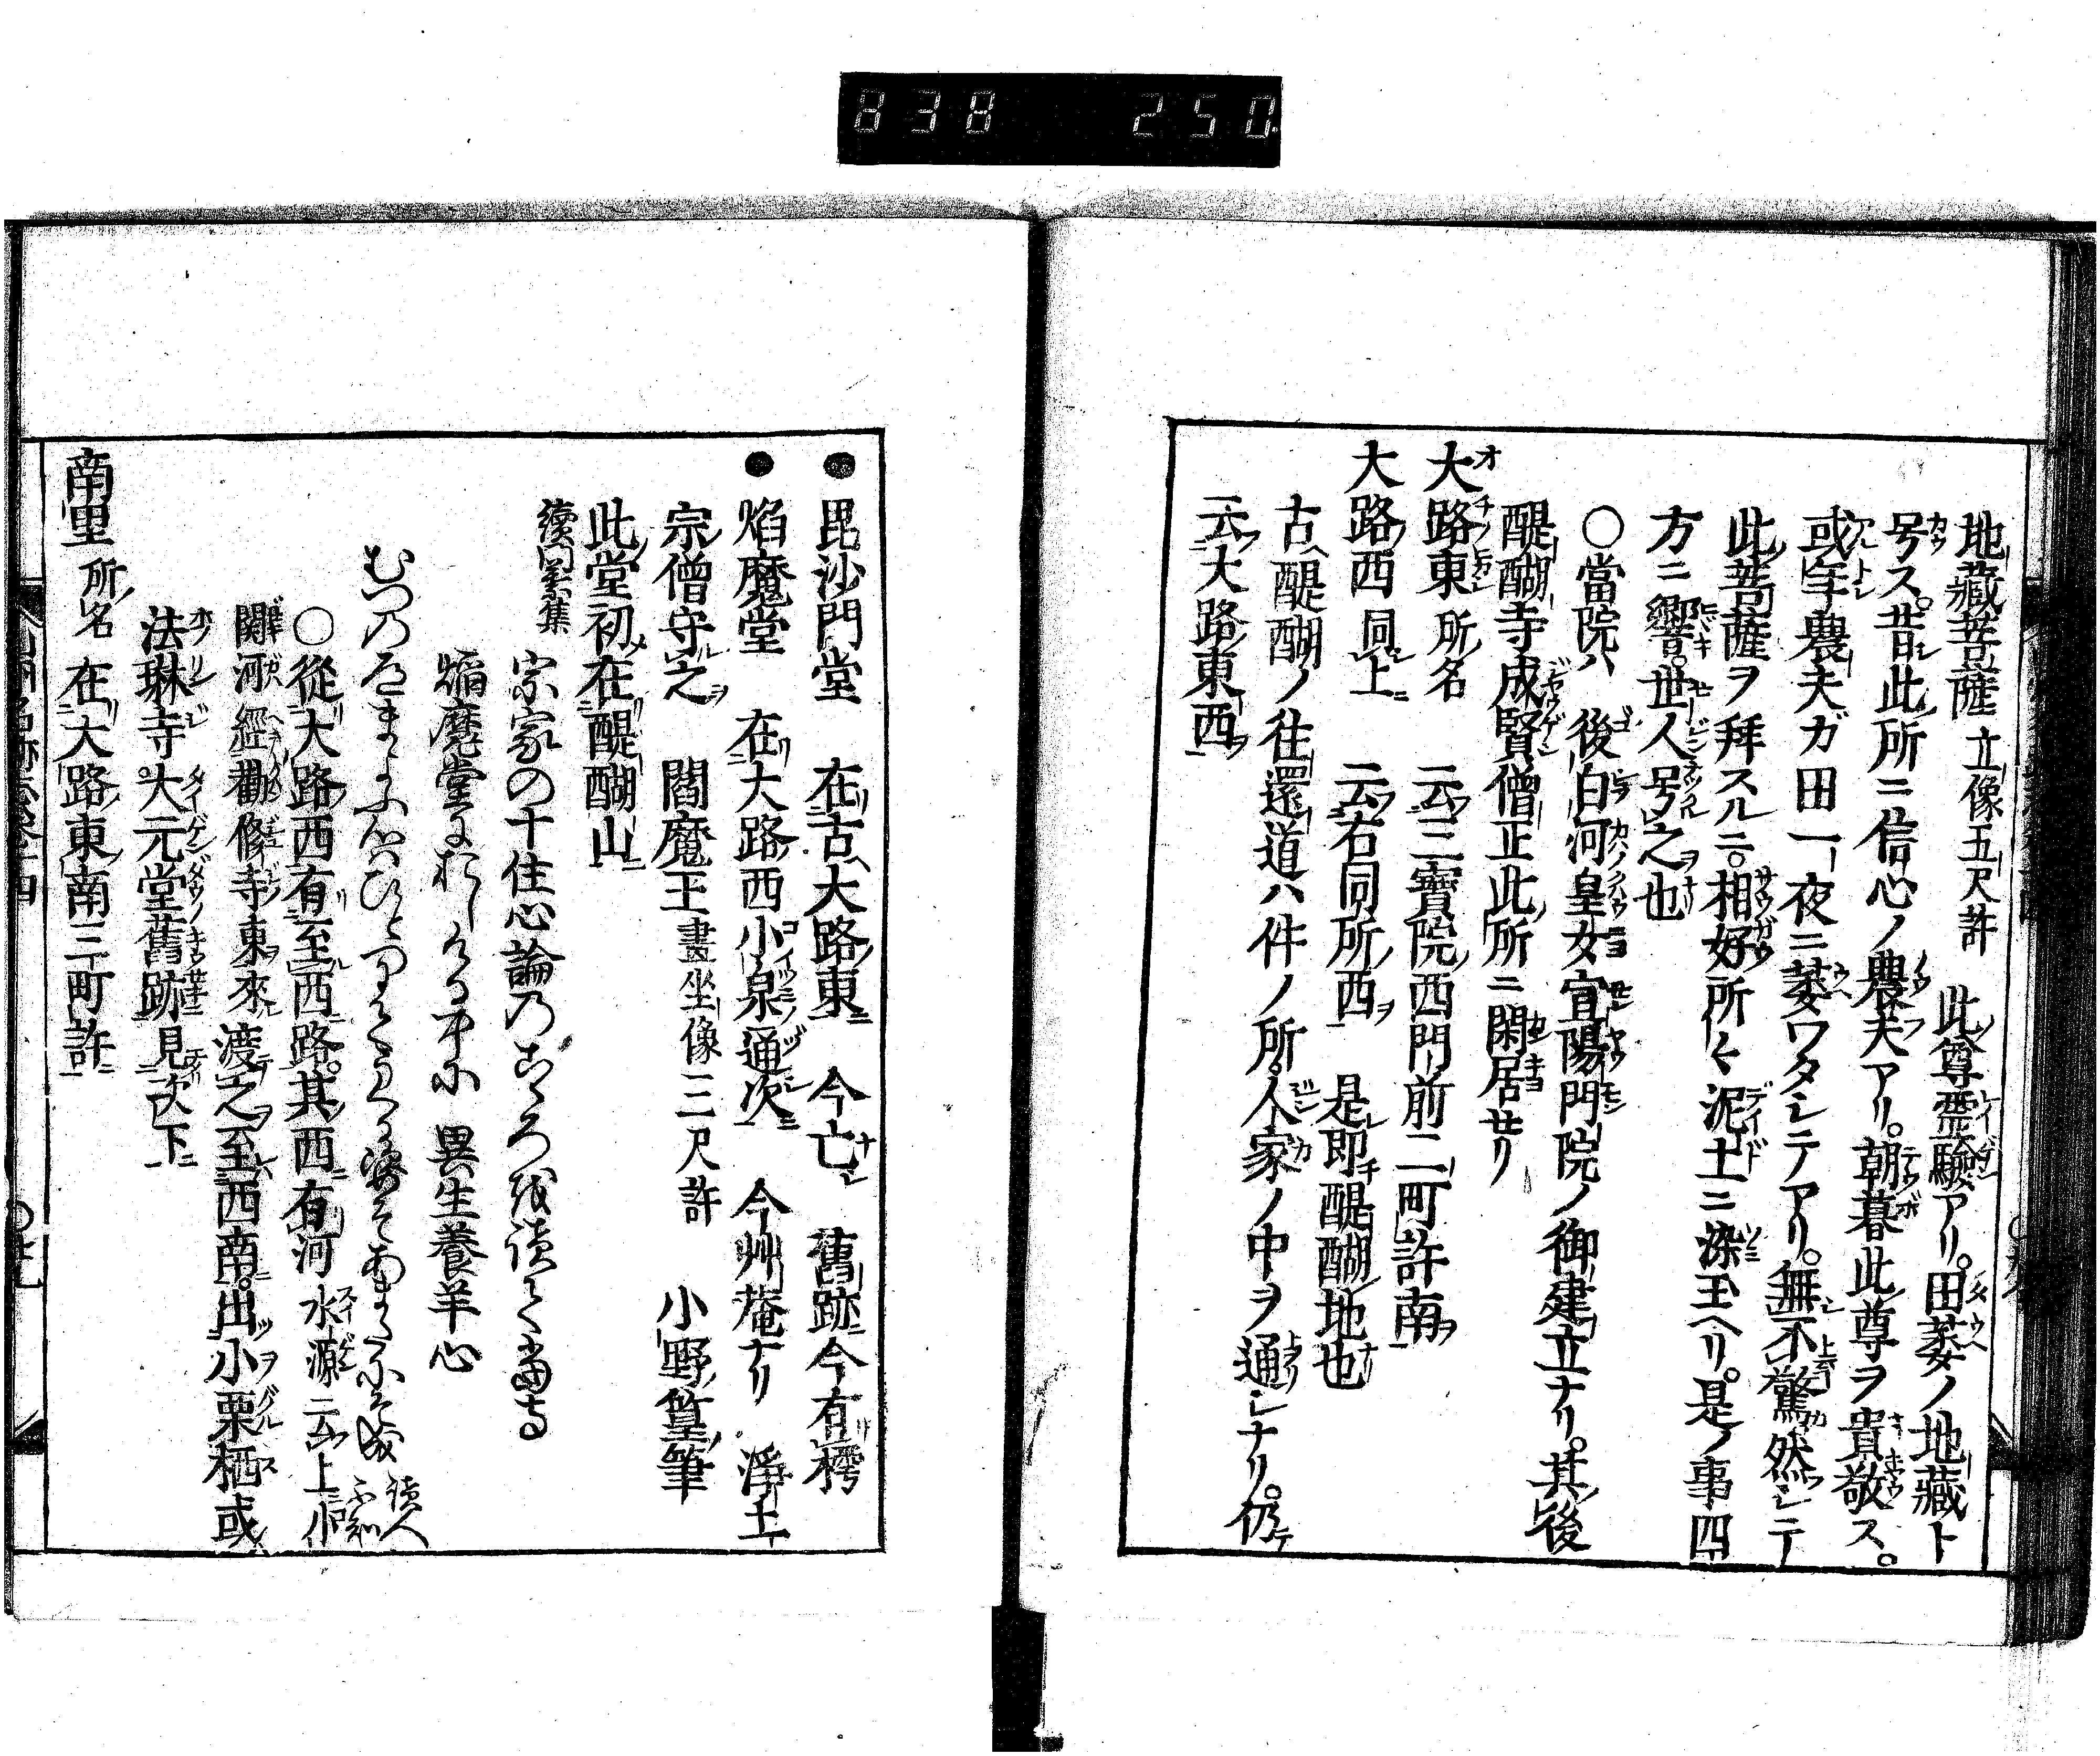 838 250.
地藏菩薩 立像五尺許 此尊霊驗アリ。田葽ノ地藏ト
号ス。昔此所ニ信心ノ農夫アリ。朝暮此尊ヲ貴敬ス。
或年農夫ガ田一夜ニ葽ワタシテアリ。無不驚然シテ
此菩薩ヲ拜スルニ。相好所々泥土ニ染玉ヘリ。是ノ事四
方ニ響。世人号之也
○當院ハ 後白河皇女宣陽門院ノ御建立ナリ。其後
醍醐寺成賢僧正此所ニ閑居セリ
大路東 所名 云三寶院西門前二町許南
大路西 同上 云右同所西 是即醍醐地也
古醍醐ノ往還道ハ件ノ所。人家ノ中ヲ通シナリ。仍
云大路東西
●毘沙門堂 在古大路東 今亡 舊跡今有樗
●焰魔堂 在大路西小泉通次 今艸菴ナリ 淨土
宗僧守之 閻魔王畫坐像三尺許 小野篁筆
此堂初在醍醐山
續門葉集
宗家の十住心論のこゝろ越讀て當寺
焔魔堂におしける中に 異生羝羊心
讀人不知
○從大路西有至西路。其西有河 水源云上小
關河經勸修寺東來渡之至西南。出小栗栖或
法琳寺。大元堂舊跡見次下
南里 所名 在大路東南三町許